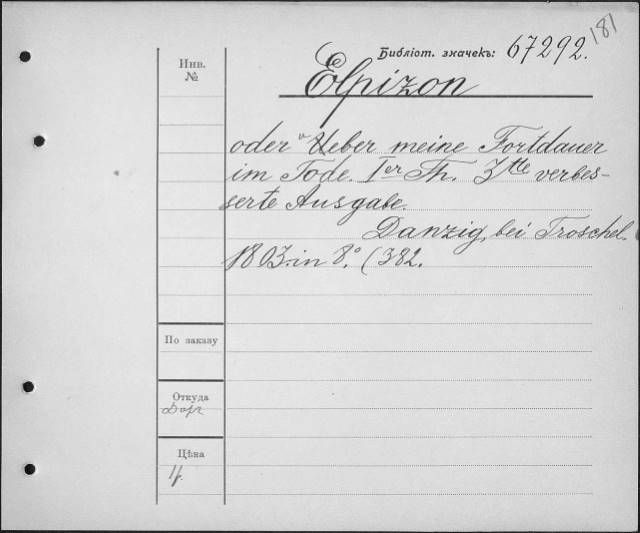 181
Библіот. значекъ: 67292.
Инв.
№
Elpizon
oder "Ueber meine Fortdauer
im Tode. Ier Th. 3tte verbes-
serte Ausgabe.
Danzig, bei Troschel.
1803. in 8.° (382.
По заказу
Откуда
Цѣна